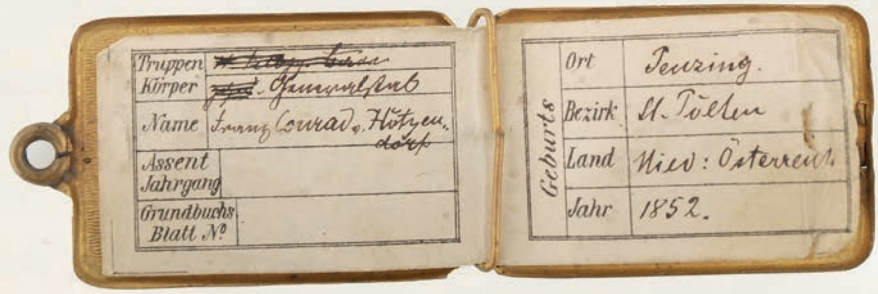 Truppen
Körper
Generalstab
Name Franz Conrad v. Hötzen-
dorf
Assent
Jahrgang
Grundbuchs
Blatt Nº
Geburts
Ort Penzing.
Bezirk St. Pölten
Land Nied: Österreich
Jahr 1852.